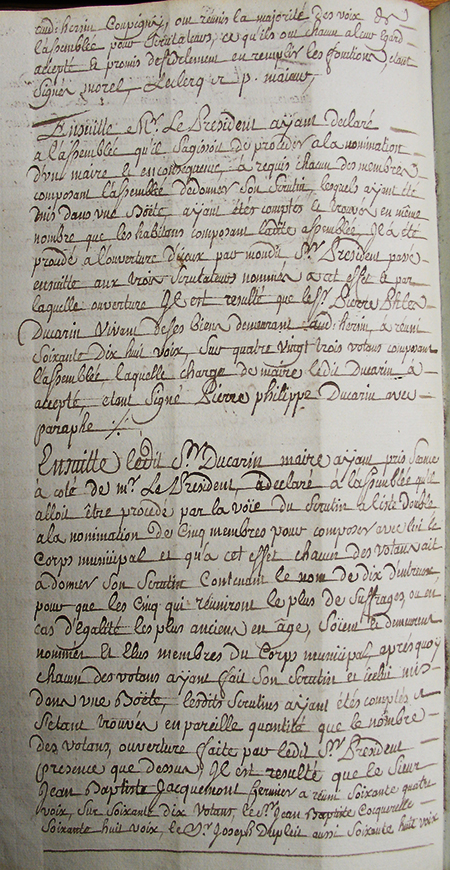 aud: hersin Coupigny, ont réunis la majorité des voix de
l'assemblée pour scrutateurs, ce qu'ils ont chacun a leur egard
accepté et promis de fidelement en remplir les fonctions, etant
signés morel, Leclercq et p. maieur,
Ensuitte Mr. Le President ayant declaré
a l'assemblée qu'il s'agissoit de proceder a la nomination
d'un maire et en consequence, à requis chacun des membres
composant l'assemblée de donner son scrutin, lesquels ayant été
mis dans une Boëte, ayant étés comptés se trouvé en même
nombre que les habitans composant ladite assemblée, Il a été
procédé a l'ouverture d'iceux par mondit Sr. President passé
ensuitte aux trois scrutateurs nommés a cet effet et par
laquelle ouverture Il est resulté que le Sr. Pierre Philee
Ducarin Vivant de ses biens demeurant aud: hersin, a reuni
soixante dix huit voix, sur quatre vingt trois votans composant
l'assemblée, laquelle charge de maire ledit Ducarin à
accepté, etant signé Pierre philippe Ducarin avec
paraphe /.
Ensuitte ledit Sr. Ducarin maire ayant pris séance
à coté de mr. Le President, a declaré a l'assemblée qu'il
alloit être procédé par la voie du scrutin a liste double
a la nomination de Cinq membres pour composer avec lui le
Corps municipal et qu'a cet effet chacun des votans ait
à donner son scrutin Contenant le nom de dix d'entre eux,
pour que les Cinq qui réuniront le plus de suffrages, ou en
cas d'égalité les plus anciens en âge, soïent et demeurent
nommés et Elus membres du Corps municipal, après quoy
chacun des votans ayant fait son scrutin et icelui mis
dans une Boëte, lesdits scrutins ayant étés comptés et
s'etant trouvés en pareille quantité que le nombre
des votans, ouverture faite par ledit Sr. President
Presence que dessus, Il est resulté que le Sieur
Jean Baptiste Jacquemont fermier a réuni soixante quatre
voix, sur soixante dix votans, le Sr. Jean Baptiste Cocquerelle
soixante huit voix, le Sr. Joseph Dupleit aussi soixante huit voix